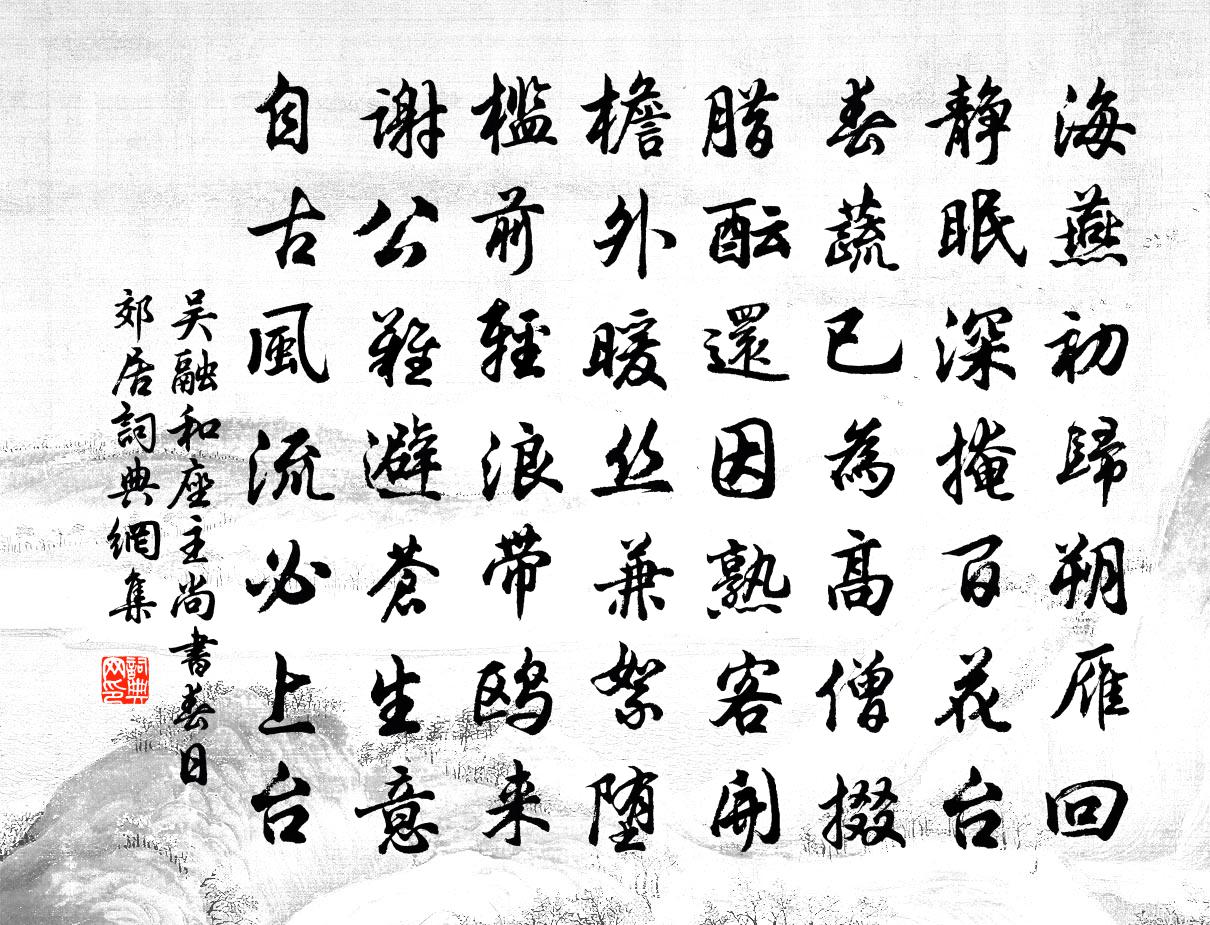 海燕初歸朔雁回
靜眠深掩百花台
春蔬已為高僧掇
腊酝還因熟客開
檐外暖丝兼絮堕
槛前輕浪帶鸥来
謝公難避蒼生意
自古風流必上台
吴融和座主尚書春日
郊居詞典網集
詞典网印